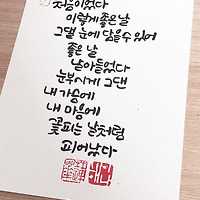 처음이었다
이렇게 좋은 날
그댈 눈에 담을 수 있어
좋은 날
날아들었다
눈부시게 그댄
내 가슴에
내 마음에
꽃피는 날처럼
피어났다